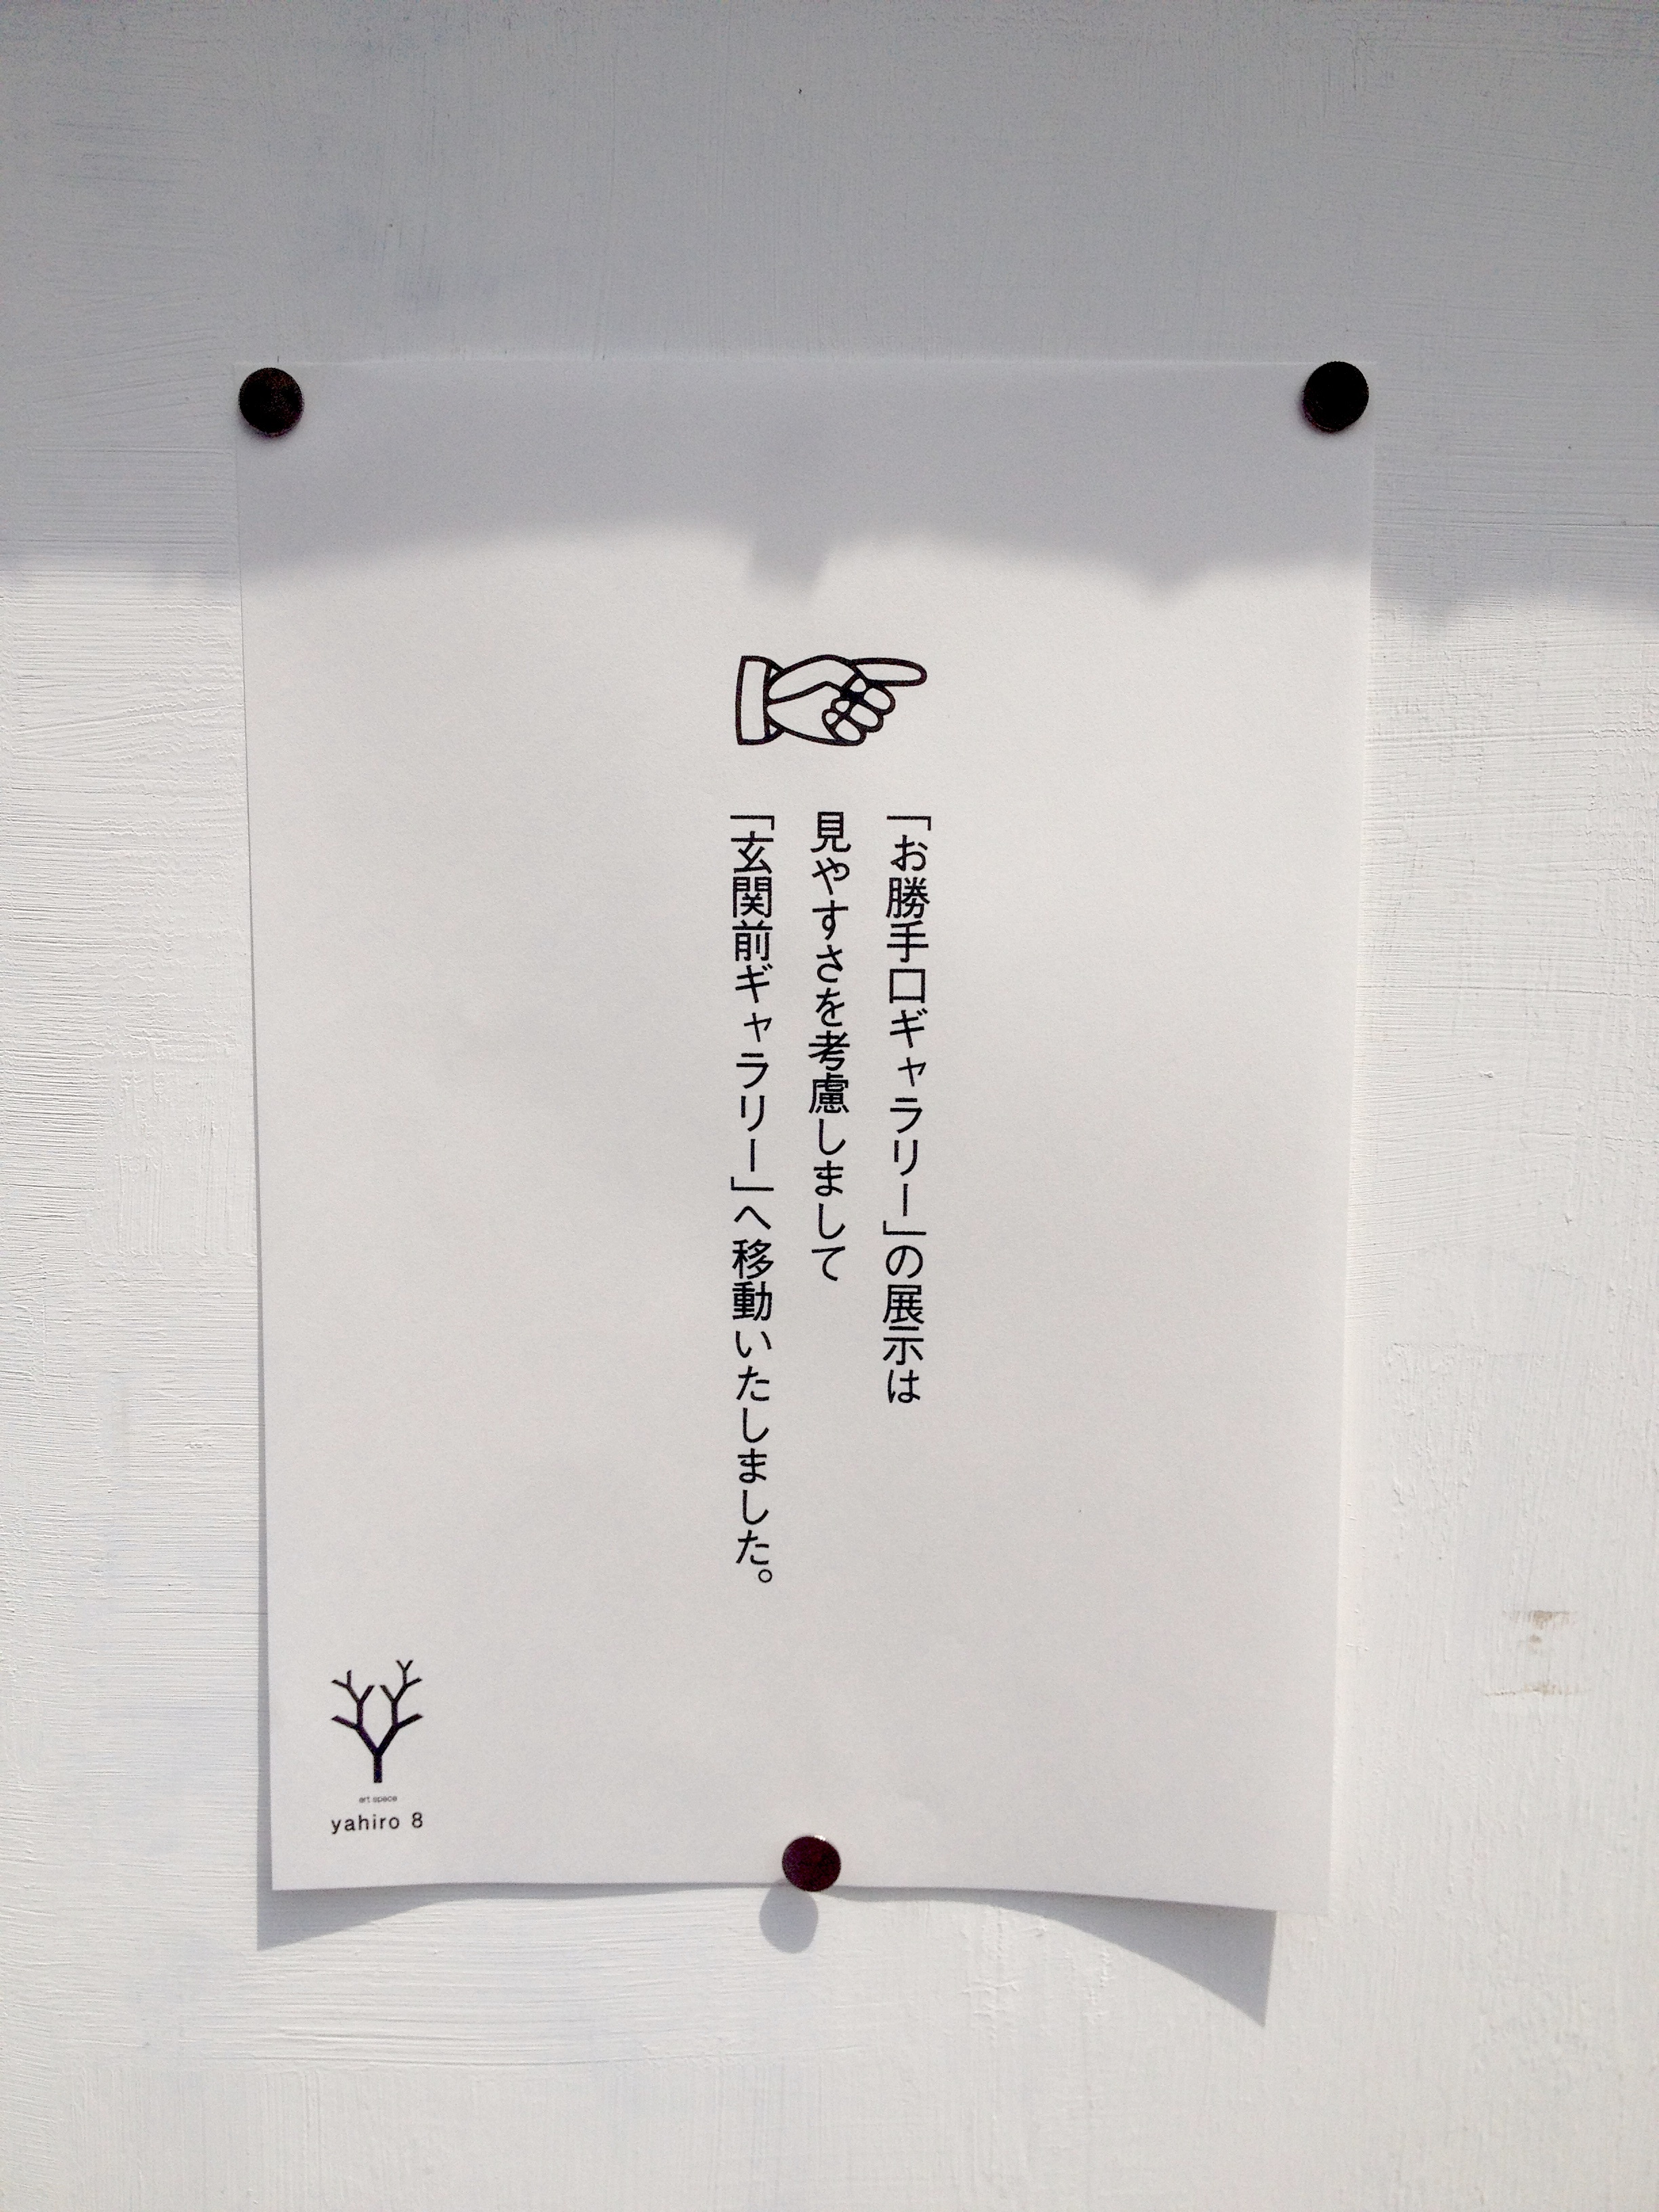 「お勝手口ギャラリー」の展示は
見やすさを考慮しまして
「玄関前ギャラリー」へ移動いたしました。
art space
yahiro 8